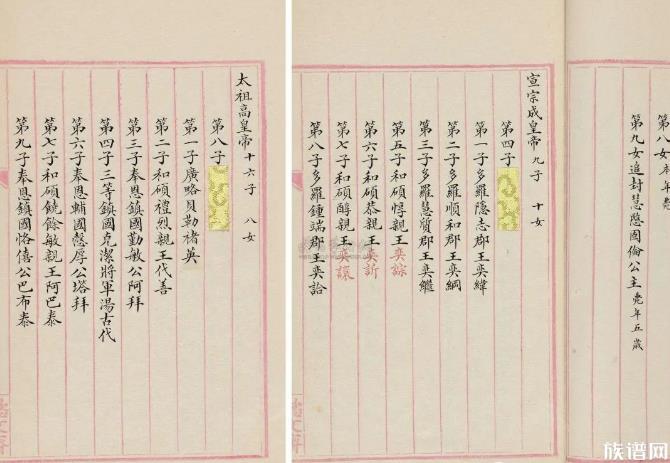 太祖高皇帝 十六子 八女
第八子
第一子廣略貝勒褚英
第二子和碩禮烈親王代善
第三子奉恩鎮國勤敏公阿拜
第四子三等鎮國克潔將軍湯古代
第六子奉恩輔國慤厚公塔拜
第七子和碩饒餘敏親王阿巴泰
第九子奉恩鎮國恪僖公巴布泰
宣宗成皇帝 九子 十女
第四子
第一子多羅隱志郡王奕緯
第二子多羅順和郡王奕綱
第三子多羅慧質郡王奕繼
第五子和碩惇親王奕誴
第六子和碩恭親王奕訢
第七子和碩醇親王奕譞
第八子多羅鍾端郡王奕詥
第八女 年
第九女追封慧愍固倫公主 年五歲
族谱网